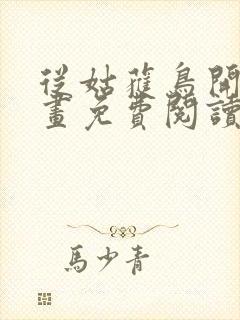 從姑蘿鳥開
畫免費閱讀
馬少青